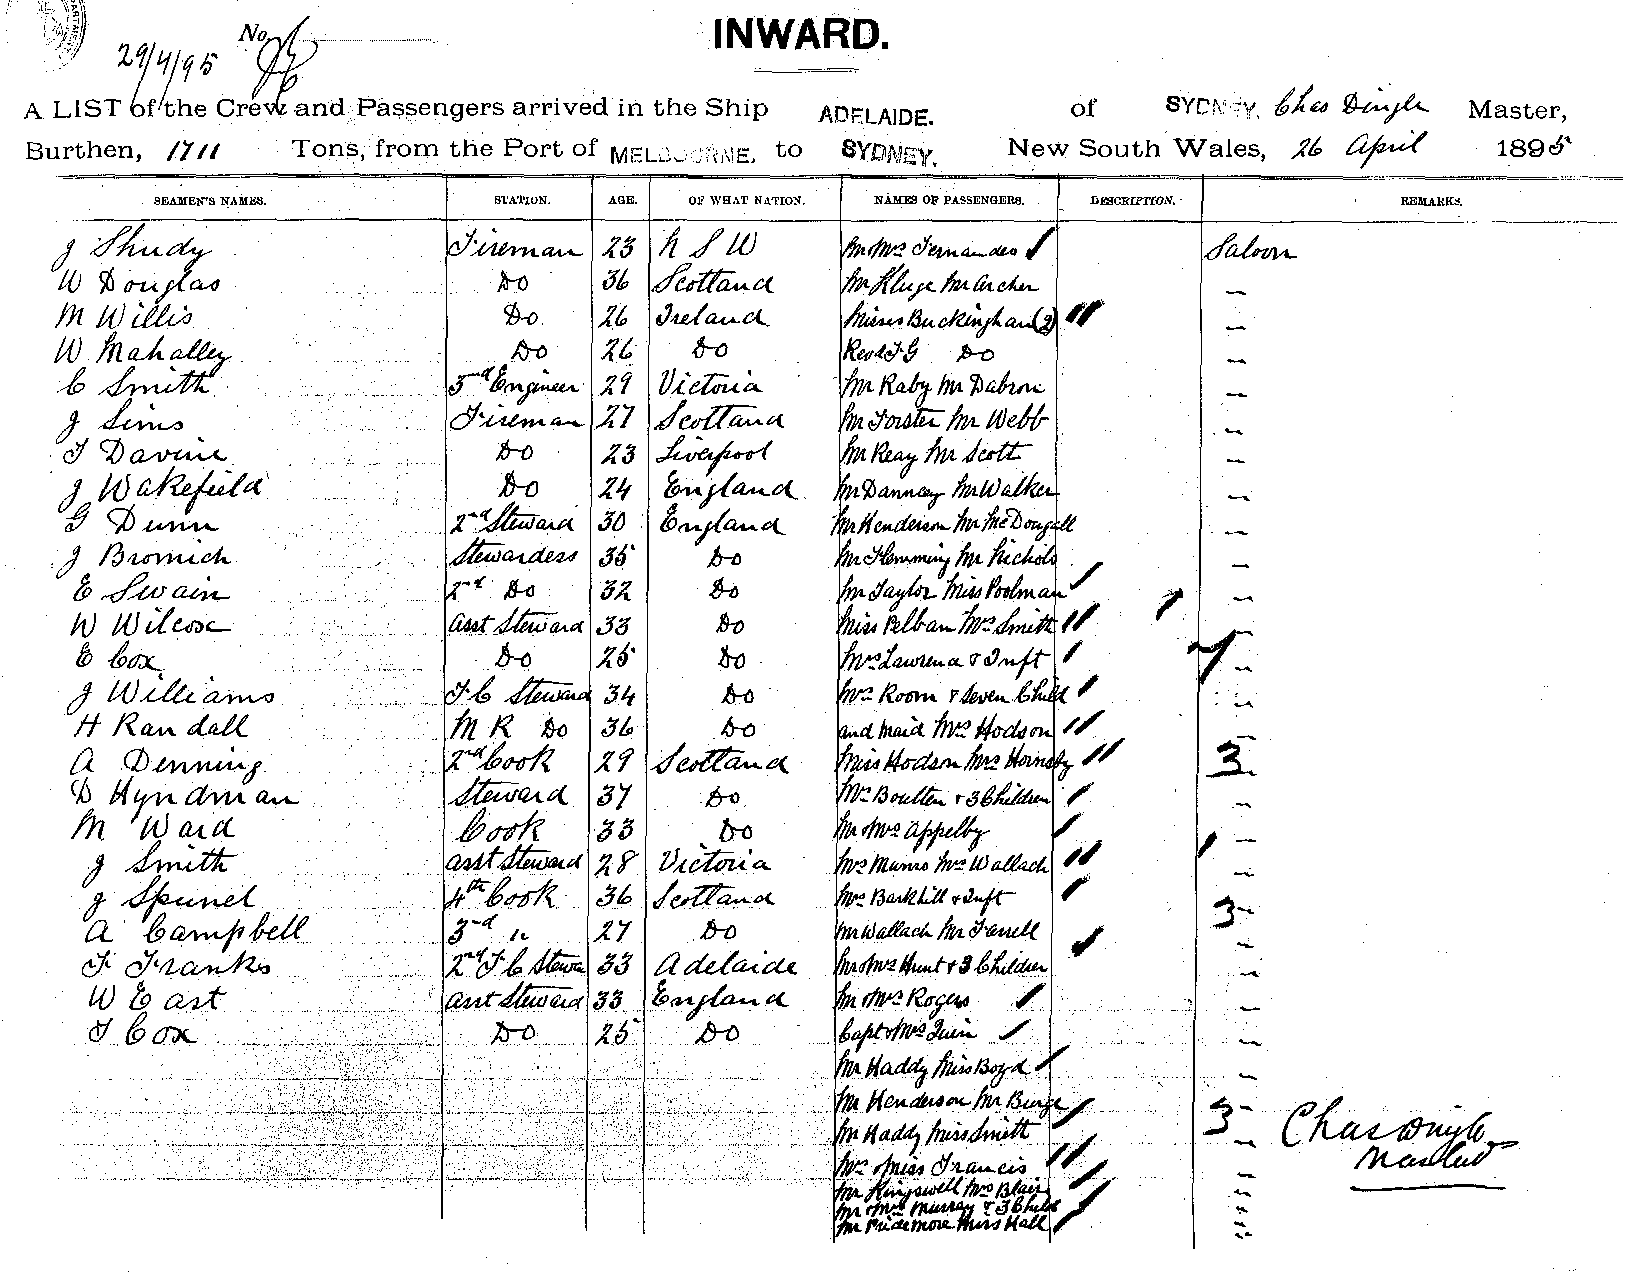 INWARD.
29/4/95 No
A LIST of the Crew and Passengers arrived in the Ship ADELAIDE. of SYDNEY, Chas Dingle Master,
Burthen, 1711 Tons, from the Port of MELBOURNE, to SYDNEY. New South Wales, 26 April 1895
SEAMEN'S NAMES. STATION. AGE. OF WHAT NATION. NAMES OF PASSENGERS. DESCRIPTION. REMARKS.
J Shudy Fireman 23 N S W Mr Mrs Fernandes Saloon
W Douglas Do 36 Scotland Mr Kluge Mr Archer —
M Willis Do 26 Ireland Misses Buckingham (2) —
W Mahalley Do 26 Do Revd F G Do —
C Smith 3rd Engineer 29 Victoria Mr Raby Mr Dabron —
J Sims Fireman 27 Scotland Mr Forster Mr Webb —
T Davine Do 23 Liverpool Mr Reay Mr Scott —
J Wakefield Do 24 England Mr Dannay Mr Walker —
G Dunn 2nd Steward 30 England Mr Henderson Mr McDougall —
J Bromich Stewardess 35 Do Mr Flemming Mr Nichols —
E Swain 2nd Do 32 Do Mr Taylor Miss Poolman —
W Wilcox asst Steward 33 Do Miss Pelban Mrs Smith —
E Cox Do 25 Do Mrs Lawrence & Inft —
J Williams F C Steward 34 Do Mrs Room & Seven Child 7 —
H Randall M R Do 36 Do and maid Mrs Hodson —
A Denning 2nd Cook 29 Scotland Miss Hodson Mrs Hornsby 3
D Hyndman Steward 37 Do Mrs Boulten & 3 Children —
M Ward Cook 33 Do Mr Mrs Appelby —
J Smith asst Steward 28 Victoria Mrs Munro Mrs Wallach —
J Spunel 4th Cook 36 Scotland Mrs Barkhill & Inft —
A Campbell 3rd " 27 Do Mr Wallach Mr Farrell 3 —
F Franks 2nd F C Stewa 33 Adelaide Mr Mrs Hunt & 3 Children —
W East asst Steward 33 England Mr Mrs Rogers —
T Cox Do 25 Do Capt & Mrs Quin —
Mr Haddy Miss Boyd —
Mr Henderson Mr Burge 3 —
Mr Haddy Miss Smith — Chas Dingle
Mrs & Miss Francis — Master
Mr Kingswell Mrs Blair —
Mr Mrs Murray & 3 Child —
Mr Pridemore Miss Hall —